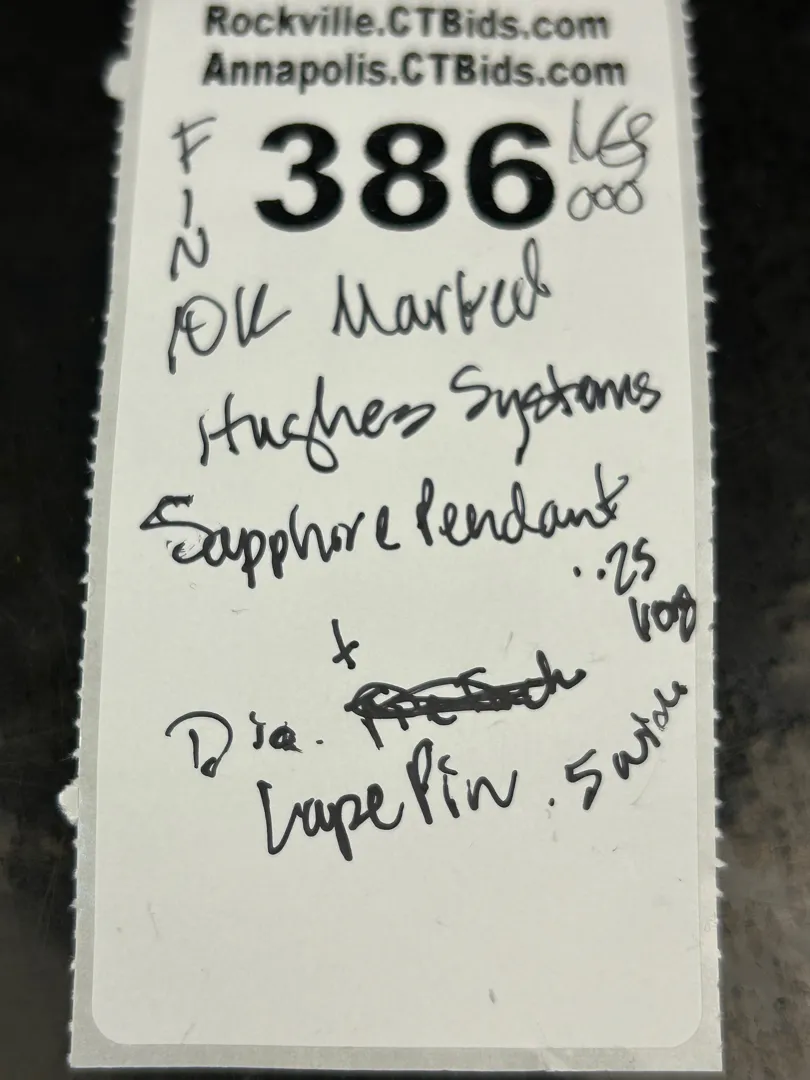 Rockville.CTBids.com
Annapolis.CTBids.com
FIN
386
000
10K Marked
Hughes Systems
Sapphire Pendant
..25
+
Dia.
Lape Pin .5 wide